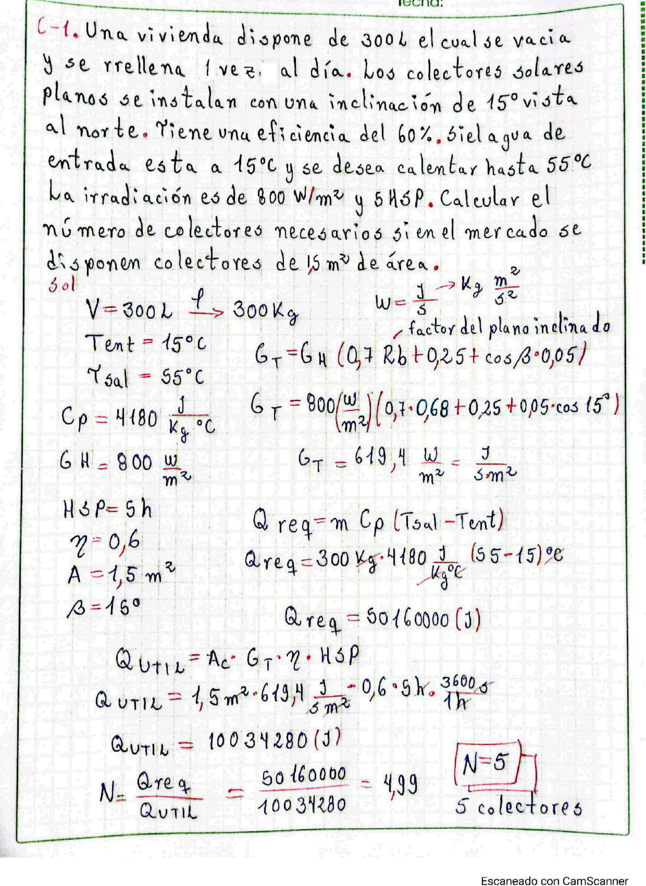 fecha:
C-1. Una vivienda dispone de 300L el cual se vacia
y se rrellena 1 vez. al día. Los colectores solares
planos se instalan con una inclinación de 15° vista
al norte. Tiene una eficiencia del 60%. Si el agua de
entrada esta a 15°C y se desea calentar hasta 55°C
La irradiación es de 800 W/m² y 5 HSP. Calcular el
número de colectores necesarios si en el mercado se
disponen colectores de 1,5 m² de área.
Sol
V = 300L ρ→ 300Kg
W = J/s → Kg m²/s²
factor del plano inclinado
Tent = 15°C
G_T = G_H (0,7 Rb + 0,25 + cosβ·0,05)
Tsal = 55°C
Cp = 4180 J/Kg °C
G_T = 800 (W/m²)(0,7·0,68 + 0,25 + 0,05·cos 15°)
GH = 800 W/m²
G_T = 619,4 W/m² = J/s·m²
HSP = 5h
Q req = m Cp (Tsal - Tent)
η = 0,6
Q req = 300 Kg · 4180 J/Kg°C (55-15) °C
A = 1,5 m²
β = 15°
Q req = 50160000 (J)
Q UTIL = Ac · G_T · η · HSP
Q UTIL = 1,5 m² · 619,4 J/s m² · 0,6 · 5h · 3600s/1h
Q UTIL = 10034280 (J)
N = Q req/Q UTIL = 50160000/10034280 = 4,99
N=5
5 colectores
Escaneado con CamScanner